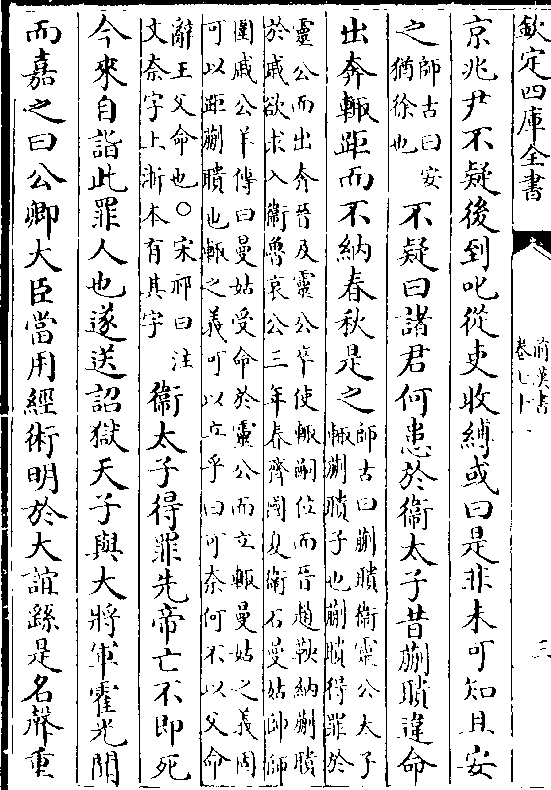 欽定四庫全書
前漢書
卷七十一
三
京兆尹不疑後到叱從吏收縛或曰是非未可知且安
之師古曰安猶徐也不疑曰諸君何患於衞太子昔蒯聵違命
出奔輒距而不納春秋是之師古曰蒯聵衛靈公太子輒蒯聵子也蒯聵得罪於
靈公而出奔晉及靈公卒使輒嗣位而晉趙鞅納蒯聵
於戚欲求入衞魯哀公三年春齊國夏衛石曼姑帥師
圍戚公羊傳曰曼姑受命於靈公而立輒曼姑之義固
可以距蒯聵也輒之義可以立乎曰可奈何不以父命
辭王父命也○宋祁曰注
文奈字上浙本有其字衞太子得罪先帝亡不即死
今來自詣此罪人也遂送詔獄天子與大將軍霍光聞
而嘉之曰公卿大臣當用經術明於大誼繇是名聲重